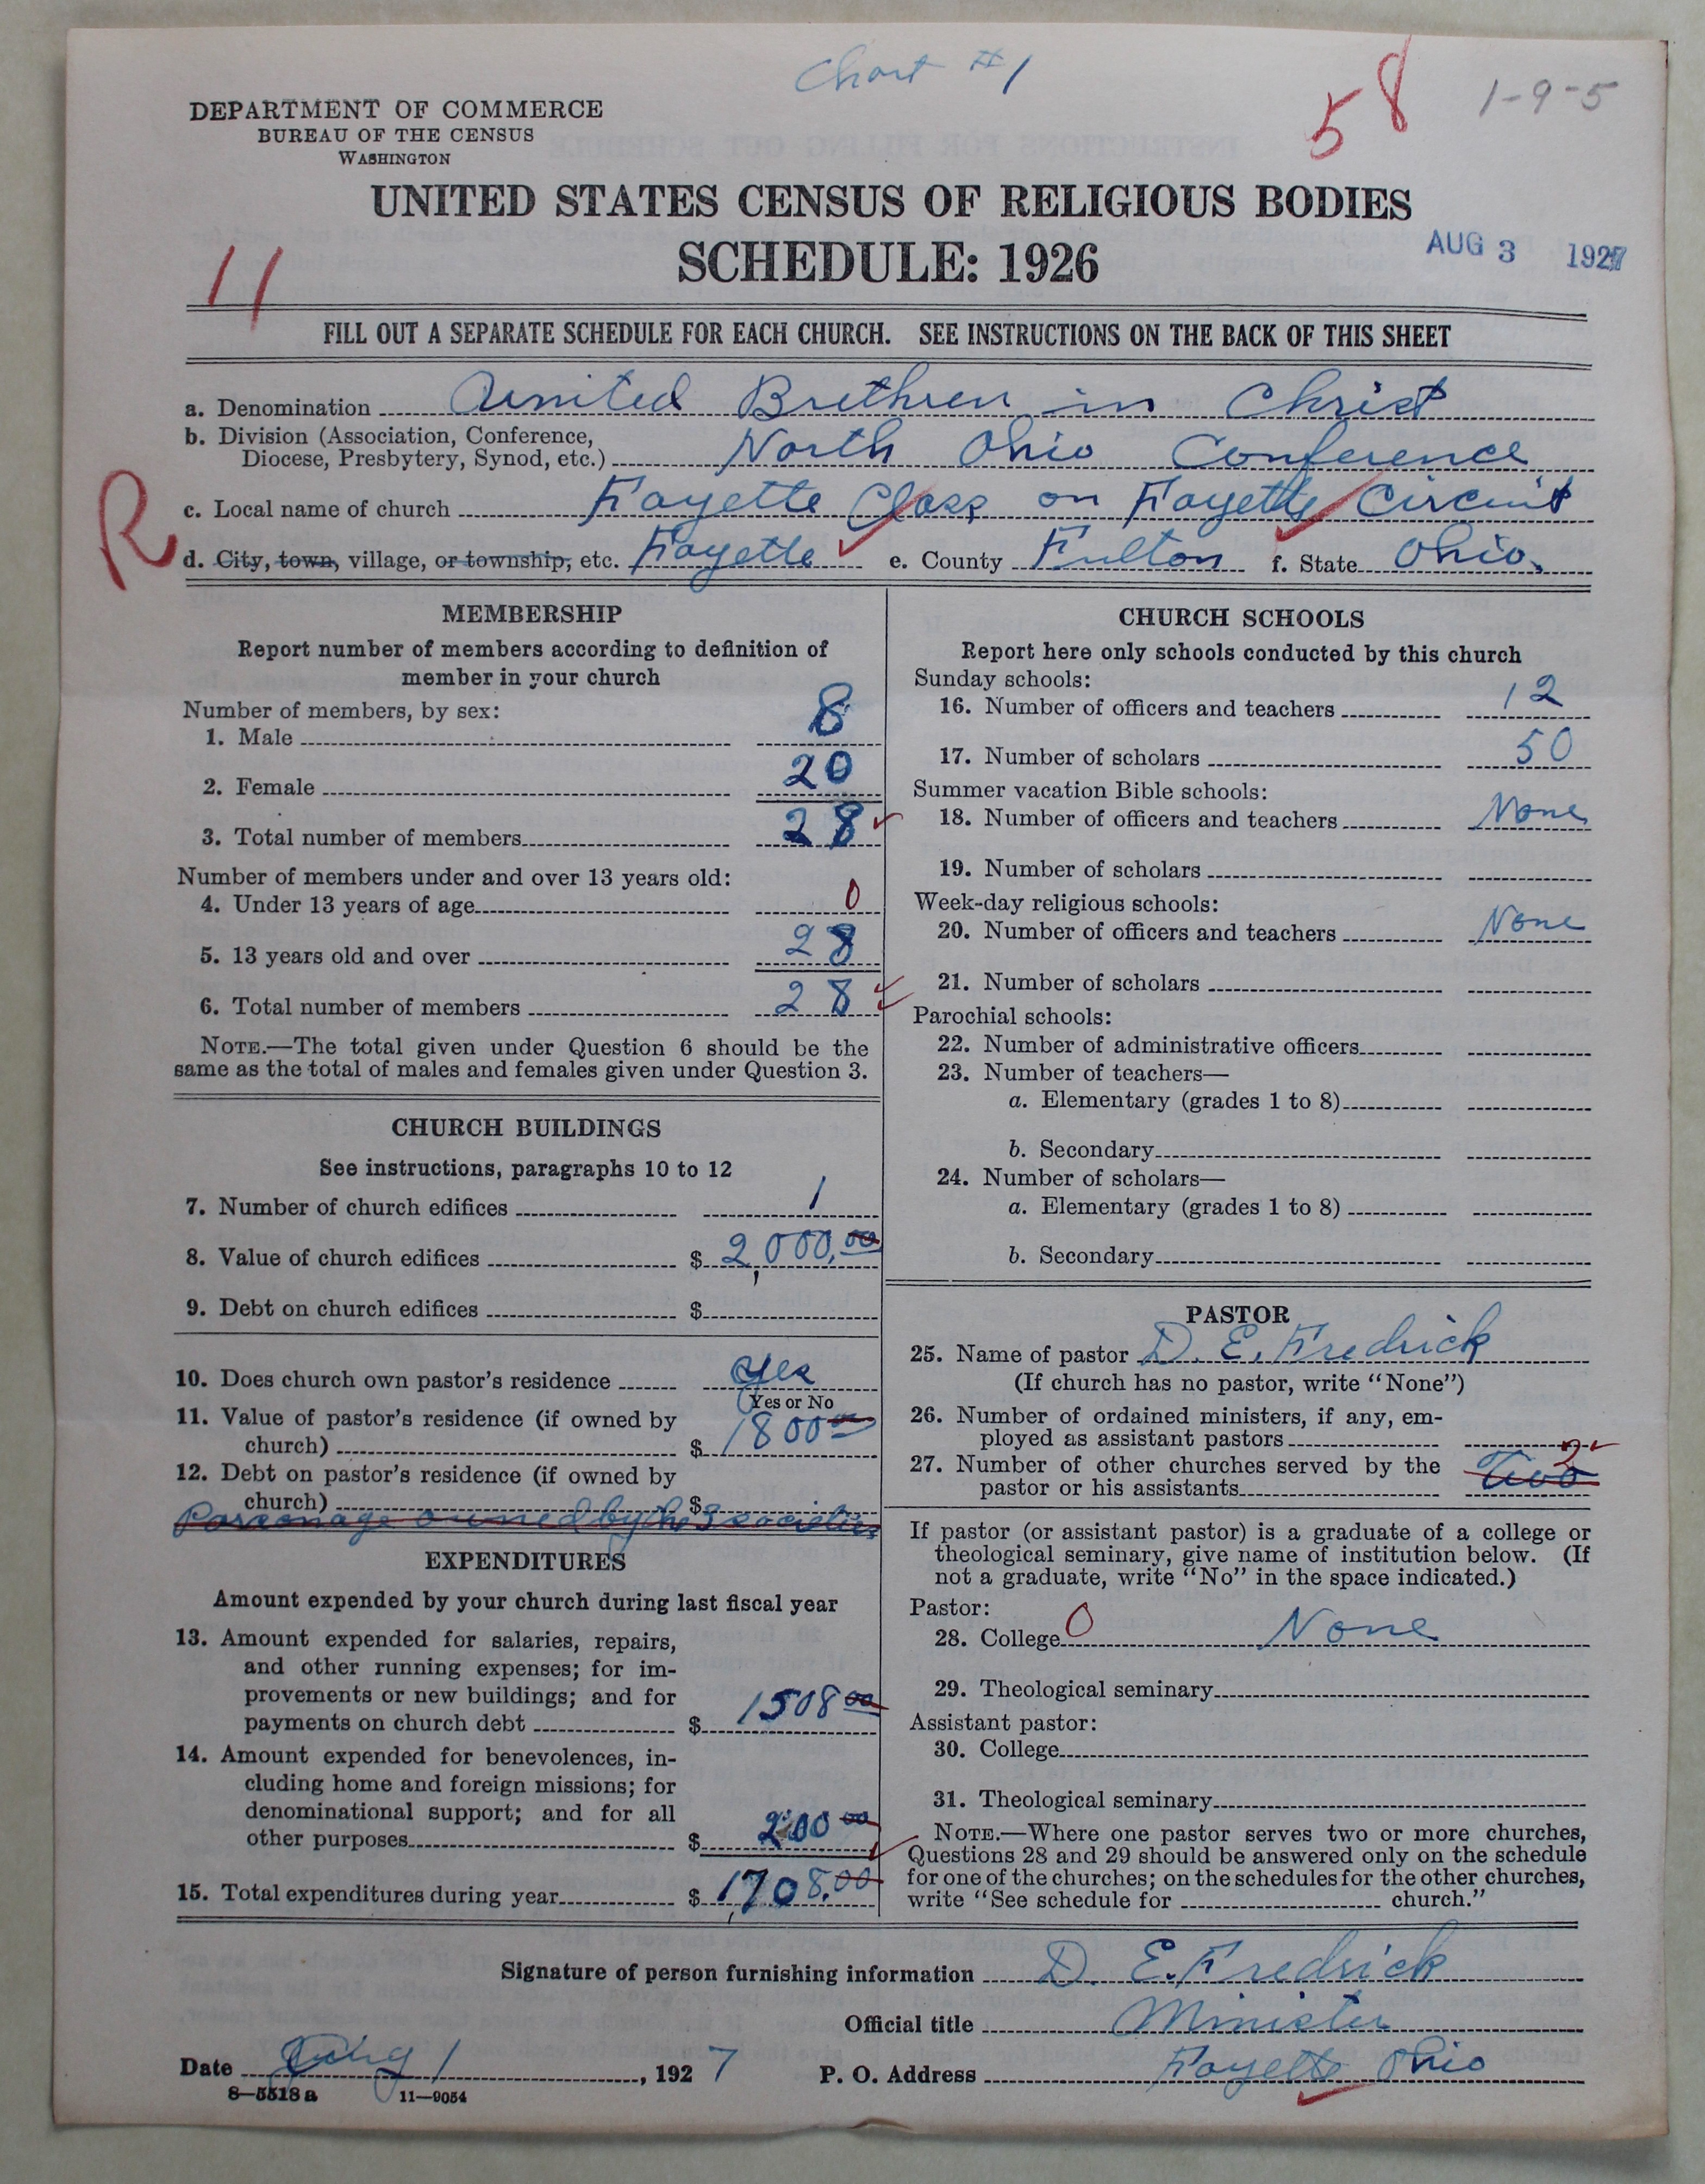 Chart #1
58
1-9-5
DEPARTMENT OF COMMERCE
BUREAU OF THE CENSUS
WASHINGTON
UNITED STATES CENSUS OF RELIGIOUS BODIES
SCHEDULE: 1926
AUG 3 1927
11
FILL OUT A SEPARATE SCHEDULE FOR EACH CHURCH. SEE INSTRUCTIONS ON THE BACK OF THIS SHEET
a. Denomination United Brethren in Christ
b. Division (Association, Conference,
Diocese, Presbytery, Synod, etc.) North Ohio Conference
c. Local name of church Fayette Class on Fayette Circuit
R
d. City, town, village, or township, etc. Fayette e. County Fulton f. State Ohio.
MEMBERSHIP
Report number of members according to definition of
member in your church
Number of members, by sex:
1. Male 8
2. Female 20
3. Total number of members 28
Number of members under and over 13 years old:
4. Under 13 years of age 0
5. 13 years old and over 28
6. Total number of members 28
NOTE.—The total given under Question 6 should be the
same as the total of males and females given under Question 3.
CHURCH BUILDINGS
See instructions, paragraphs 10 to 12
7. Number of church edifices 1
8. Value of church edifices $ 2,000.00
9. Debt on church edifices $
10. Does church own pastor's residence yes
Yes or No
11. Value of pastor's residence (if owned by
church) $ 1800 00
12. Debt on pastor's residence (if owned by
church) $
Parsonage owned by the 3 societies
EXPENDITURES
Amount expended by your church during last fiscal year
13. Amount expended for salaries, repairs,
and other running expenses; for im-
provements or new buildings; and for
payments on church debt $ 1508 00
14. Amount expended for benevolences, in-
cluding home and foreign missions; for
denominational support; and for all
other purposes $ 200 00
15. Total expenditures during year $ 1,708.00
CHURCH SCHOOLS
Report here only schools conducted by this church
Sunday schools:
16. Number of officers and teachers 12
17. Number of scholars 50
Summer vacation Bible schools:
18. Number of officers and teachers None
19. Number of scholars
Week-day religious schools:
20. Number of officers and teachers None
21. Number of scholars
Parochial schools:
22. Number of administrative officers
23. Number of teachers—
a. Elementary (grades 1 to 8)
b. Secondary
24. Number of scholars—
a. Elementary (grades 1 to 8)
b. Secondary
PASTOR
25. Name of pastor D. E. Fredrick
(If church has no pastor, write "None")
26. Number of ordained ministers, if any, em-
ployed as assistant pastors
27. Number of other churches served by the
pastor or his assistants Two 2
If pastor (or assistant pastor) is a graduate of a college or
theological seminary, give name of institution below. (If
not a graduate, write "No" in the space indicated.)
Pastor:
28. College 0 None
29. Theological seminary
Assistant pastor:
30. College
31. Theological seminary
NOTE.—Where one pastor serves two or more churches,
Questions 28 and 29 should be answered only on the schedule
for one of the churches; on the schedules for the other churches,
write "See schedule for church."
Signature of person furnishing information D. E. Fredrick
Official title Minister
Date Aug 1, 1927 P. O. Address Fayette Ohio
8—5518 a 11—9054